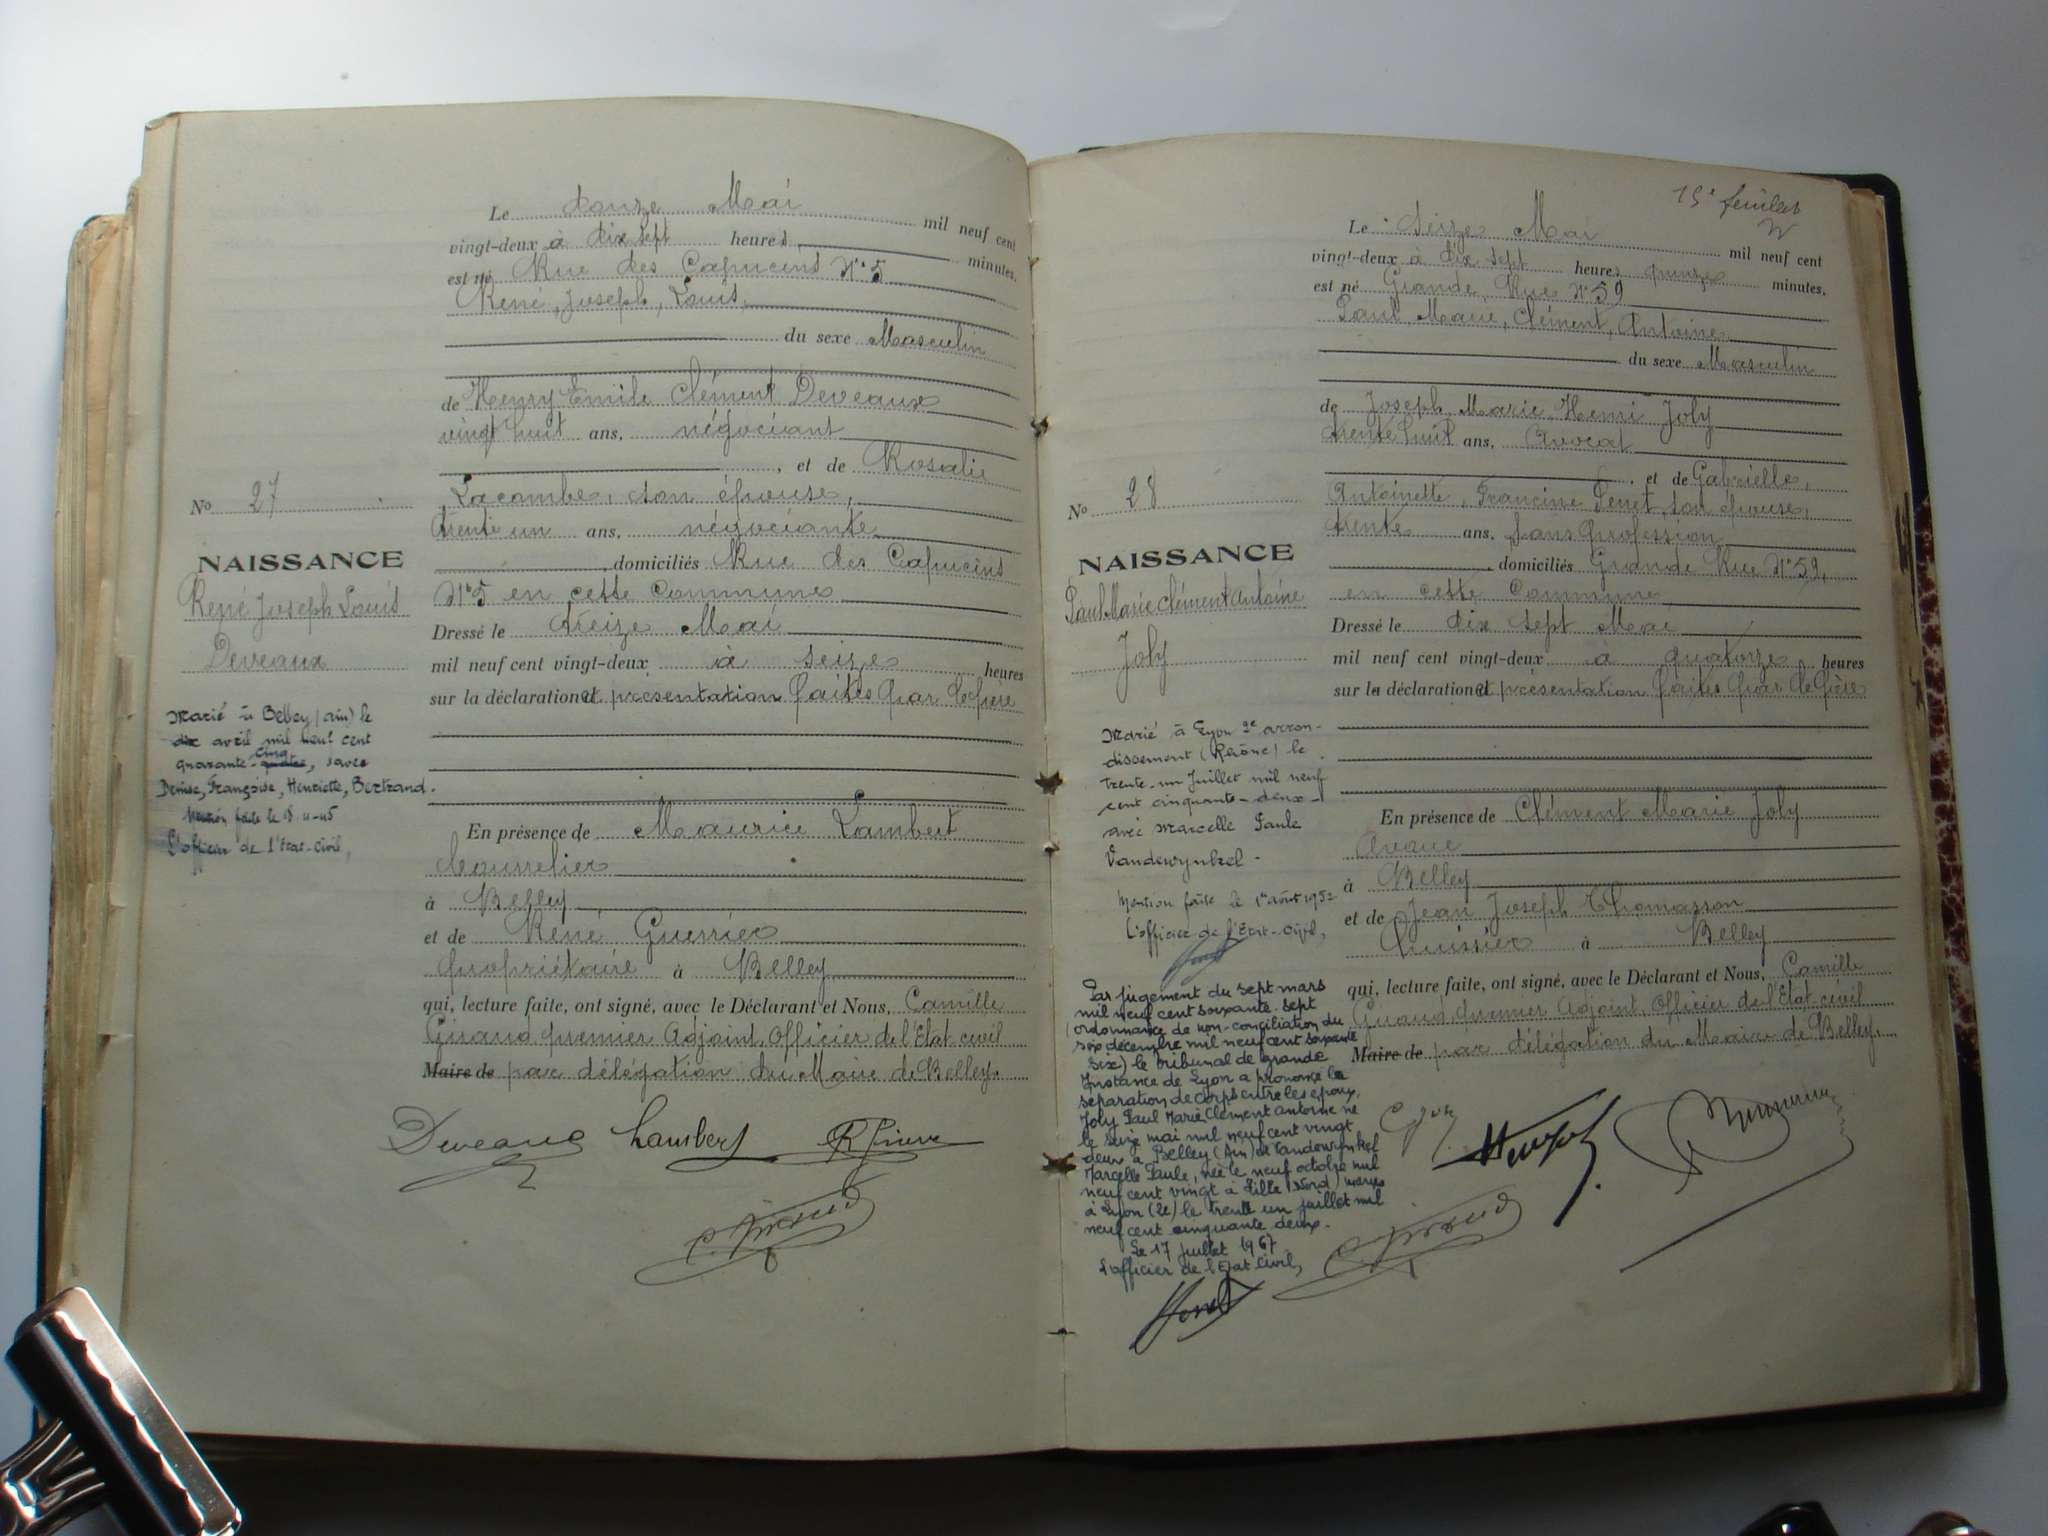 Le douze Mai mil neuf cent
vingt-deux à dix sept heures minutes.
est né Rue des Capucins N° 5
René, Joseph, Louis,
du sexe Masculin
de Henry Emile Clément Deveaux
vingt huit ans, négociant
, et de Rosalie
Lacombe, son épouse,
trente un ans, négociante
, domiciliés Rue des Capucins
N° 5 en cette Commune
Dressé le treize Mai
mil neuf cent vingt-deux à seize heures
sur la déclaration et présentation faites par le père
En présence de Maurice Lambert
à Belley
et de René Guerrier
propriétaire à Belley
qui, lecture faite, ont signé, avec le Déclarant et Nous, Camille
Giraud premier Adjoint, Officier de l'Etat civil
Maire de par délégation du Maire de Belley.
Deveaux Lambert
C. Giraud
No 27
NAISSANCE
René Joseph Louis
Deveaux
Marié à Belley (Ain) le
dix avril mil neuf cent
quarante-quatre cinq, avec
Denise, Françoise, Henriette, Bertrand.
Mention faite le
L'officier de l'Etat-Civil,
15e feuillet
Le seize Mai mil neuf cent
vingt-deux à dix sept heures quinze minutes.
est né Grande Rue N° 59
Paul, Marie, Clément, Antoine,
du sexe Masculin
de Joseph Marie Henri Joly
trente huit ans, avocat
, et de Gabrielle,
Antoinette, Francine son épouse,
trente ans, sans profession
, domiciliés Grande Rue N° 59,
en cette Commune
Dressé le dix sept Mai
mil neuf cent vingt-deux à quatorze heures
sur la déclaration et présentation faites par le père
En présence de Clément Marie Joly
Avoué
à Belley
et de Jean Joseph Thomasson
huissier à Belley
qui, lecture faite, ont signé, avec le Déclarant et Nous, Camille
Giraud, premier Adjoint, Officier de l'Etat civil
Maire de par délégation du Maire de Belley.
C. Giraud
No 28
NAISSANCE
Paul Marie Clément Antoine
Joly
Marié à Lyon 2e arron-
dissement (Rhône) le
trente-un Juillet mil neuf
cent cinquante-deux-
avec Marcelle Paule
Vandewynkel-
Mention faite le 1er août 1952
L'officier de l'Etat-Civil,
Par jugement du sept mars
mil neuf cent soixante sept
(ordonnance de non-conciliation du
six décembre mil neuf cent soixante
six) le tribunal de grande
Instance de Lyon a prononcé la
séparation de corps entre les époux,
Joly Paul Marie Clément Antoine né
le seize mai mil neuf cent vingt
deux à Belley (Ain) et Vandewynkel
Marcelle Paule, née le neuf octobre mil
neuf cent vingt à Lille (Nord) mariés
à Lyon (2e) le trente un juillet mil
neuf cent cinquante deux.
Le 17 juillet 1967
L'officier de l'Etat Civil,